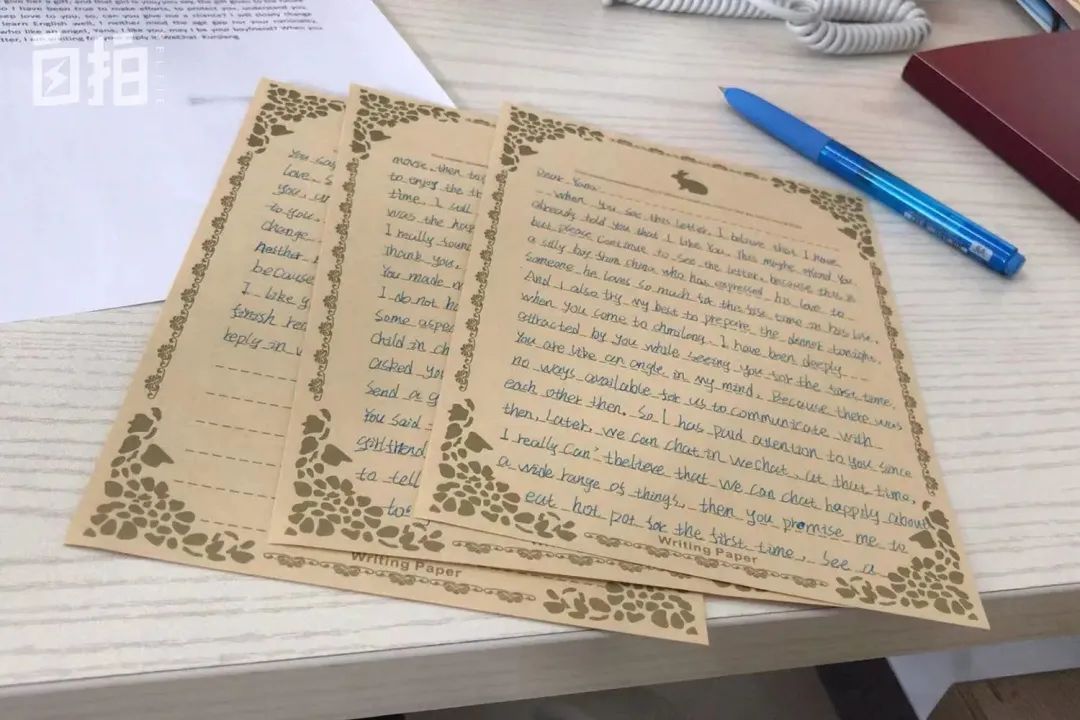 give her a gift, and that girl is you,you say, the girl given to the future
o I have been true to make efforts, to protect you, understand you
eep love to you, so, can you give me a chance? I will slowly change
learn English well, I neither mind the age gap for your nationality,
who like an angel, Yana, I like you, may I be your boyfriend? When you
tter, I am waiting for your reply it. WeChat:
自拍
You say
love
you,
to you.
change
neither
because
I like y
finish rea
reply in w
Writing Paper
move, then to
to enjoy the t
time. I still
was the ho
I really foun
thank you,
You made m
I do not ha
Some aspe
child in ch
asked you
Send a g
You said
girlfriend
to tell
to
Writing Paper
Dear Yana
When you see this letter, I believe that I have
already told you that I like you, This maybe offend you
but please continue to see the letter, because this is
a silly boy from china who has expressed his love to
someone he loves so much for the first time in his live.
And I also try my best to prepare the dinner tonight,
when you come to I have been deeply
attracted by you while seeing you for the first time.
You are like an angle in my mind. Because there was
no ways available for us to communicate with
each other then. So I has paid attention to you since
then, Later, we can chat in wechat, at that time,
I really can't believe that we can chat happily about
a wide range of things, then you promise me to
eat hot pot for the first time, see a
Writing Paper